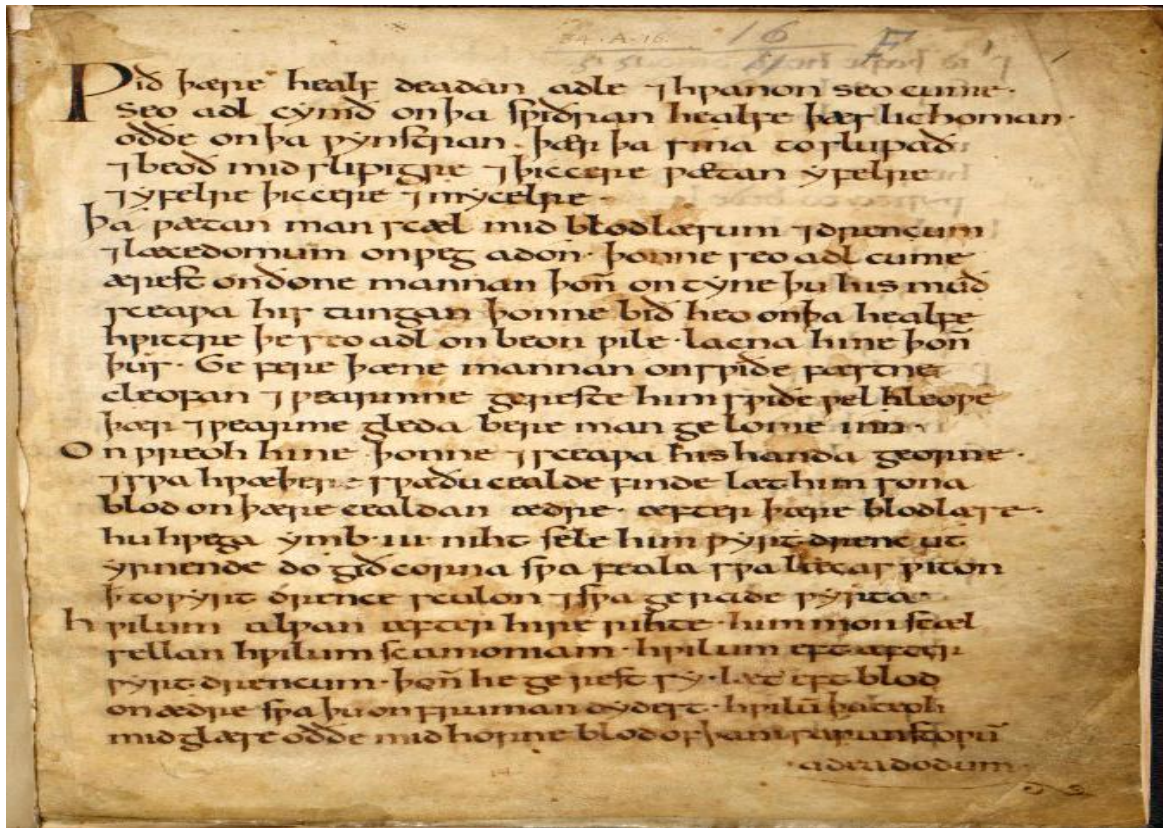 54·A·16· 16 F
Ƿið þære healf deadan adle ⁊ hƿanon seo cume·
Seo adl cymð on þa sƿiðran healfe þæs lichoman·
oððe on þa ƿynstran· þær þa sina toslupað
⁊ beoð mid slipigre ⁊ þiccere ƿætan yfelre
⁊ yfelre þiccere ⁊ mycelre·
Þa ƿætan man sceal mid blodlæsum ⁊ drencum
⁊ læcedomum onƿeg adon· þonne seo adl cume
ærest on ðone mannan þon̄ ontyne þu his muð
sceaƿa his tungan þonne bið heo on þa healfe
hƿittre þe seo adl on beon ƿile· lacna hine þon̄
þus· Ge fere þæne mannan on sƿiðe fæstne
cleofan ⁊ ƿearmne gereste him sƿiðe ƿel hleoƿe
þær ⁊ ƿearme gleda bere man ge lome inn·
On ƿreoh hine þonne ⁊ sceaƿa his handa georne·
⁊ sƿa hƿæþere sƿa ðu cealde finde læt him sona
blod on þære cealdan ædre· æfter þære blodlæse·
hu hƿega ymb·iii· niht sele him ƿyrt drenc ut
yrnende do gið corna sƿa feala sƿa læcas ƿiton
ꝥ to ƿyrt drence sculon ⁊ sƿa gerade ƿyrta·
hƿilum alƿan æfter hire rihte· him mon sceal
sellan hƿilum scamoniam· hƿilum eft æfter
ƿyrt drencum· þon̄ he ge rest sy· læt eft blod
on ædre sƿa þu on fruman dydest· hƿilū þa teoh
mid glæse oððe mid horne blod of þam sarum stoƿū
adeadodum·